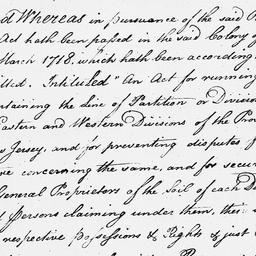 d Whereas in pursuance of the said
Act hath been passed in the said Colony
March 1718. which hath been according
itled. Intituled "An Act for running
rtaining the Line of Partition or Division
Eastern and Western Divisions of the Prov
w Jersey, and for preventing disputes f
re concerning the same, and for secur
General Proprietors of the Soil of each D
d Persons claiming under them, their
respective Possessions & Rights & just